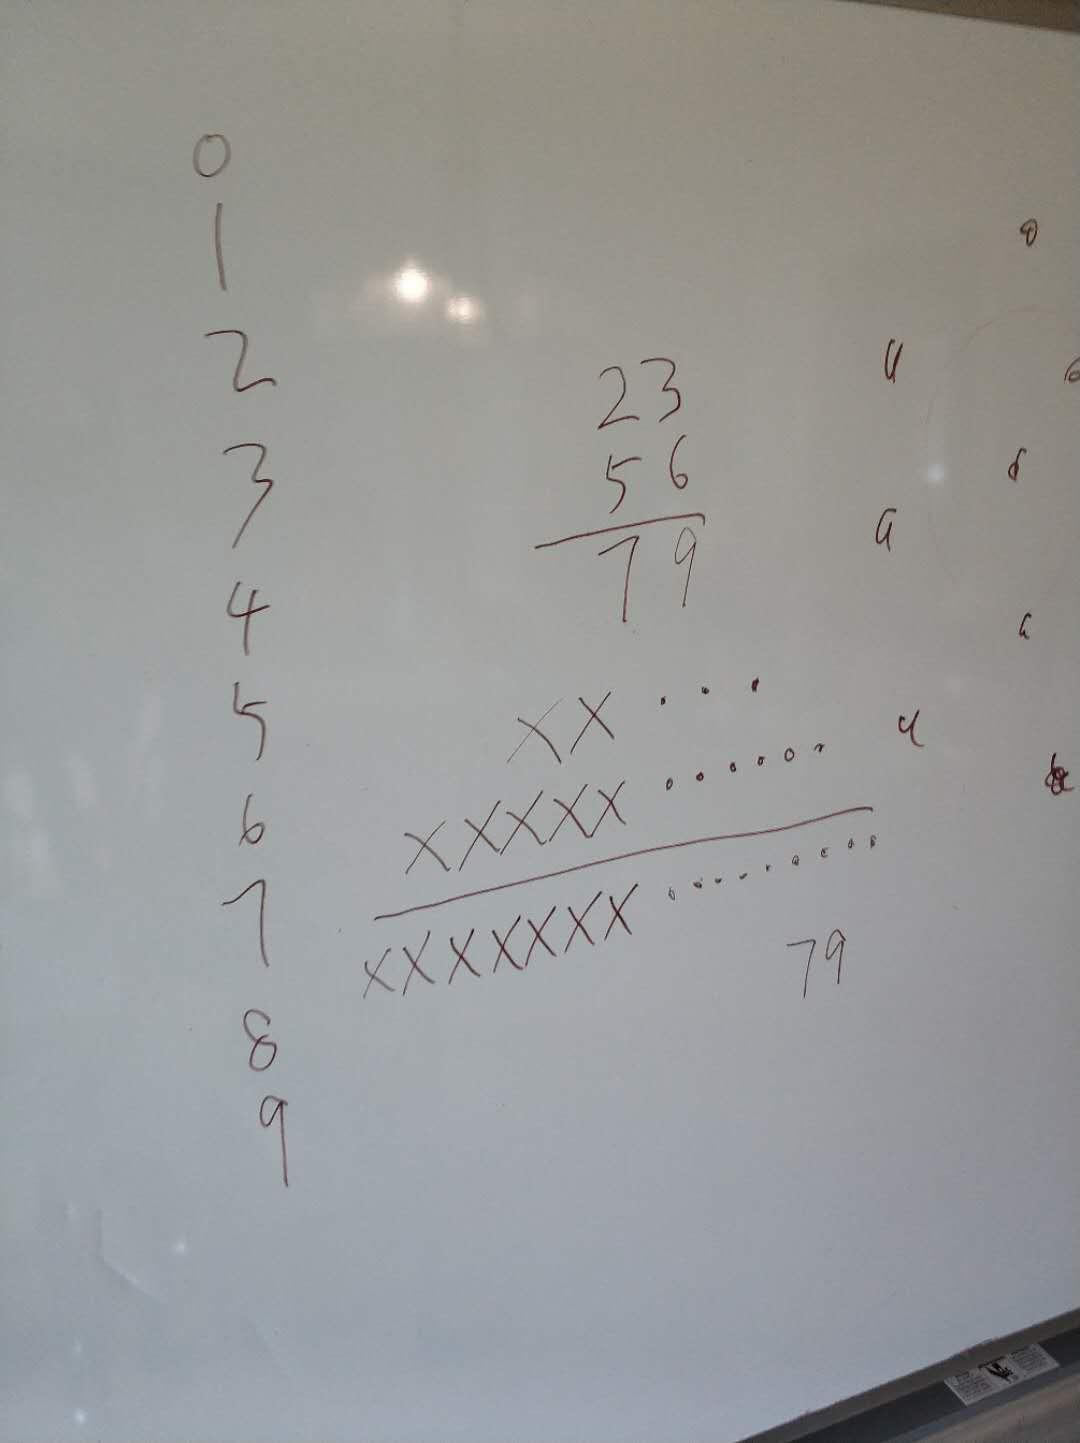 0
1
2
3
4
5
6
7
8
9
23
56
79
XX . . .
XXXXX . . . . . .
XXXXXXX . . . . . . . . .
79